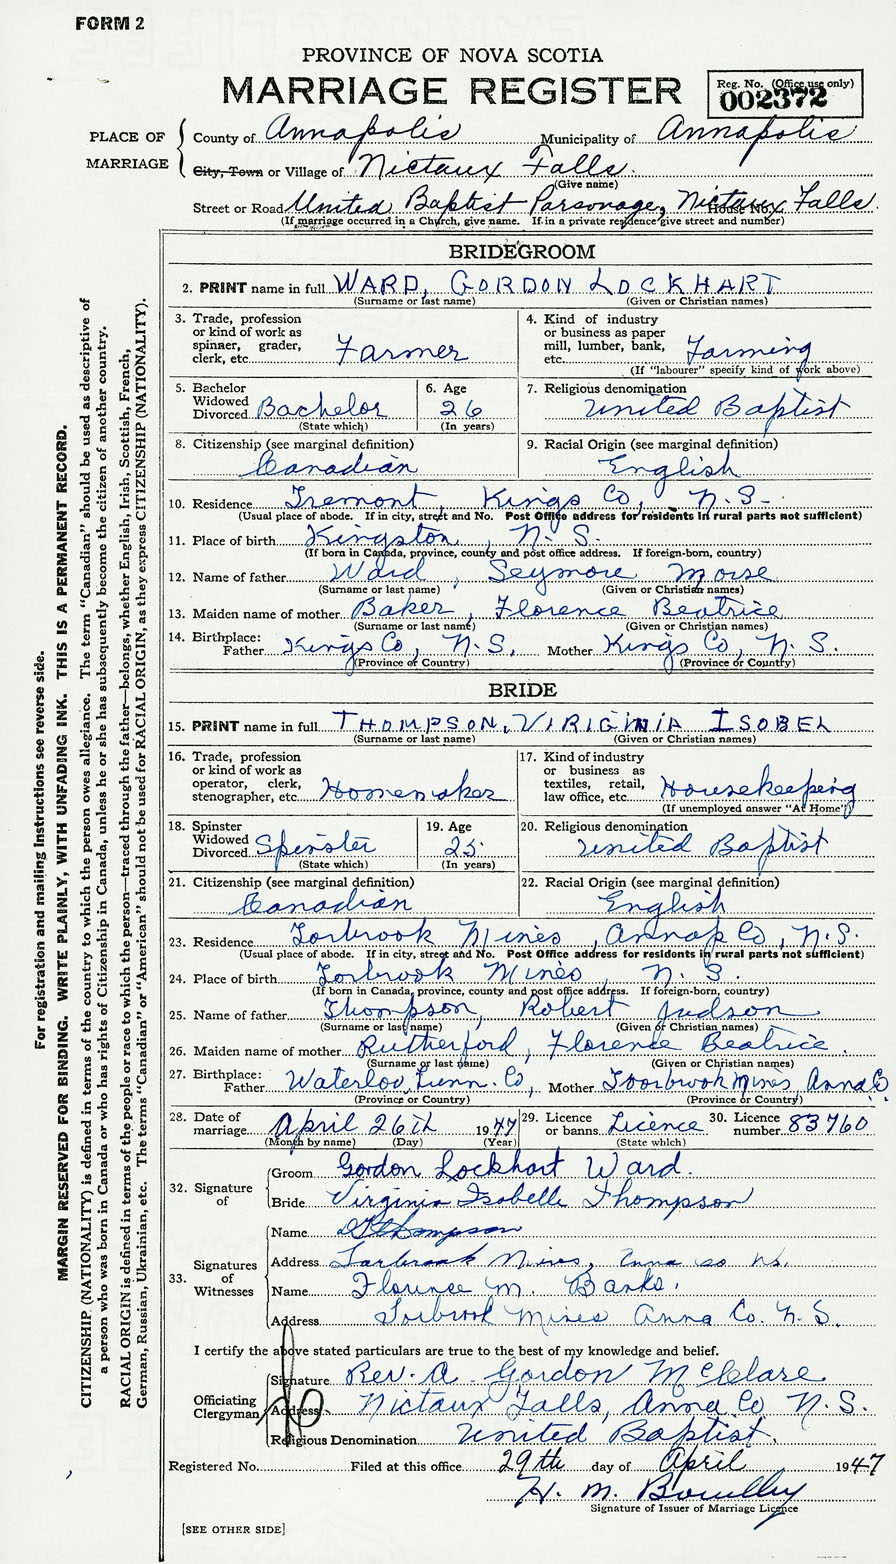 FORM 2
PROVINCE OF NOVA SCOTIA
MARRIAGE REGISTER
Reg. No. (Office use only)
002372
PLACE OF MARRIAGE
County of Annapolis Municipality of Annapolis
City, Town or Village of Nictaux Falls.
(Give name)
Street or Road United Baptist Parsonage, Nictaux Falls. House No.
(If marriage occurred in a Church, give name. If in a private residence give street and number)
BRIDEGROOM
2. PRINT name in full WARD, GORDON LOCKHART
(Surname or last name) (Given or Christian names)
3. Trade, profession or kind of work as spinner, grader, clerk, etc. Farmer
4. Kind of industry or business as paper mill, lumber, bank, etc. Farming
(If "labourer" specify kind of work above)
5. Bachelor Widowed Divorced Bachelor
(State which)
6. Age 26
(In years)
7. Religious denomination United Baptist
8. Citizenship (see marginal definition) Canadian
9. Racial Origin (see marginal definition) English
10. Residence Tremont, Kings Co, N.S.
(Usual place of abode. If in city, street and No. Post Office address for residents in rural parts not sufficient)
11. Place of birth Kingston, N.S.
(If born in Canada, province, county and post office address. If foreign-born, country)
12. Name of father Ward, Seymore Morse
(Surname or last name) (Given or Christian names)
13. Maiden name of mother Baker, Florence Beatrice
(Surname or last name) (Given or Christian names)
14. Birthplace: Father Kings Co, N.S. Mother Kings Co, N.S.
(Province or Country) (Province or Country)
BRIDE
15. PRINT name in full THOMPSON, VIRIGINIA ISOBEL
(Surname or last name) (Given or Christian names)
16. Trade, profession or kind of work as operator, clerk, stenographer, etc. Homemaker
17. Kind of industry or business as textiles, retail, law office, etc. Housekeeping
(If unemployed answer "At Home")
18. Spinster Widowed Divorced Spinster
(State which)
19. Age 25
(In years)
20. Religious denomination United Baptist
21. Citizenship (see marginal definition) Canadian
22. Racial Origin (see marginal definition) English
23. Residence Torbrook Mines, Annap Co, N.S.
(Usual place of abode. If in city, street and No. Post Office address for residents in rural parts not sufficient)
24. Place of birth Torbrook Mines, N.S.
(If born in Canada, province, county and post office address. If foreign-born, country)
25. Name of father Thompson, Robert Judson
(Surname or last name) (Given or Christian names)
26. Maiden name of mother Rutherford, Florence Beatrice.
(Surname or last name) (Given or Christian names)
27. Birthplace: Father Waterloo, Lunn. Co, Mother Toorbrook Mines Anna Co.
(Province or Country) (Province or Country)
28. Date of marriage April 26th 1947
(Month by name) (Day) (Year)
29. Licence or banns Licence
(State which)
30. Licence number 83760
32. Signature of
Groom Gordon Lockhart Ward.
Bride Virginia Isobelle Thompson
33. Signatures of Witnesses
Name Thompson
Address Torbrook Mines, Anna co Ns.
Name Florence M. Banks.
Address Torbrook Mines Anna Co. N.S.
I certify the above stated particulars are true to the best of my knowledge and belief.
Officiating Clergyman
Signature Rev. A Gordon McClare
Address Nictaux Falls, Anna Co N.S.
Religious Denomination United Baptist.
Registered No. Filed at this office 29th day of April 1947
H. M.
Signature of Issuer of Marriage Licence
[SEE OTHER SIDE]
For registration and mailing instructions see reverse side.
MARGIN RESERVED FOR BINDING. WRITE PLAINLY, WITH UNFADING INK. THIS IS A PERMANENT RECORD.
CITIZENSHIP (NATIONALITY) is defined in terms of the country to which the person owes allegiance. The term "Canadian" should be used as descriptive of
a person who was born in Canada or who has rights of Citizenship in Canada, unless he or she has subsequently become the citizen of another country.
RACIAL ORIGIN is defined in terms of the people or race to which the person—traced through the father—belongs, whether English, Irish, Scottish, French,
German, Russian, Ukrainian, etc. The terms "Canadian" or "American" should not be used for RACIAL ORIGIN, as they express CITIZENSHIP (NATIONALITY).